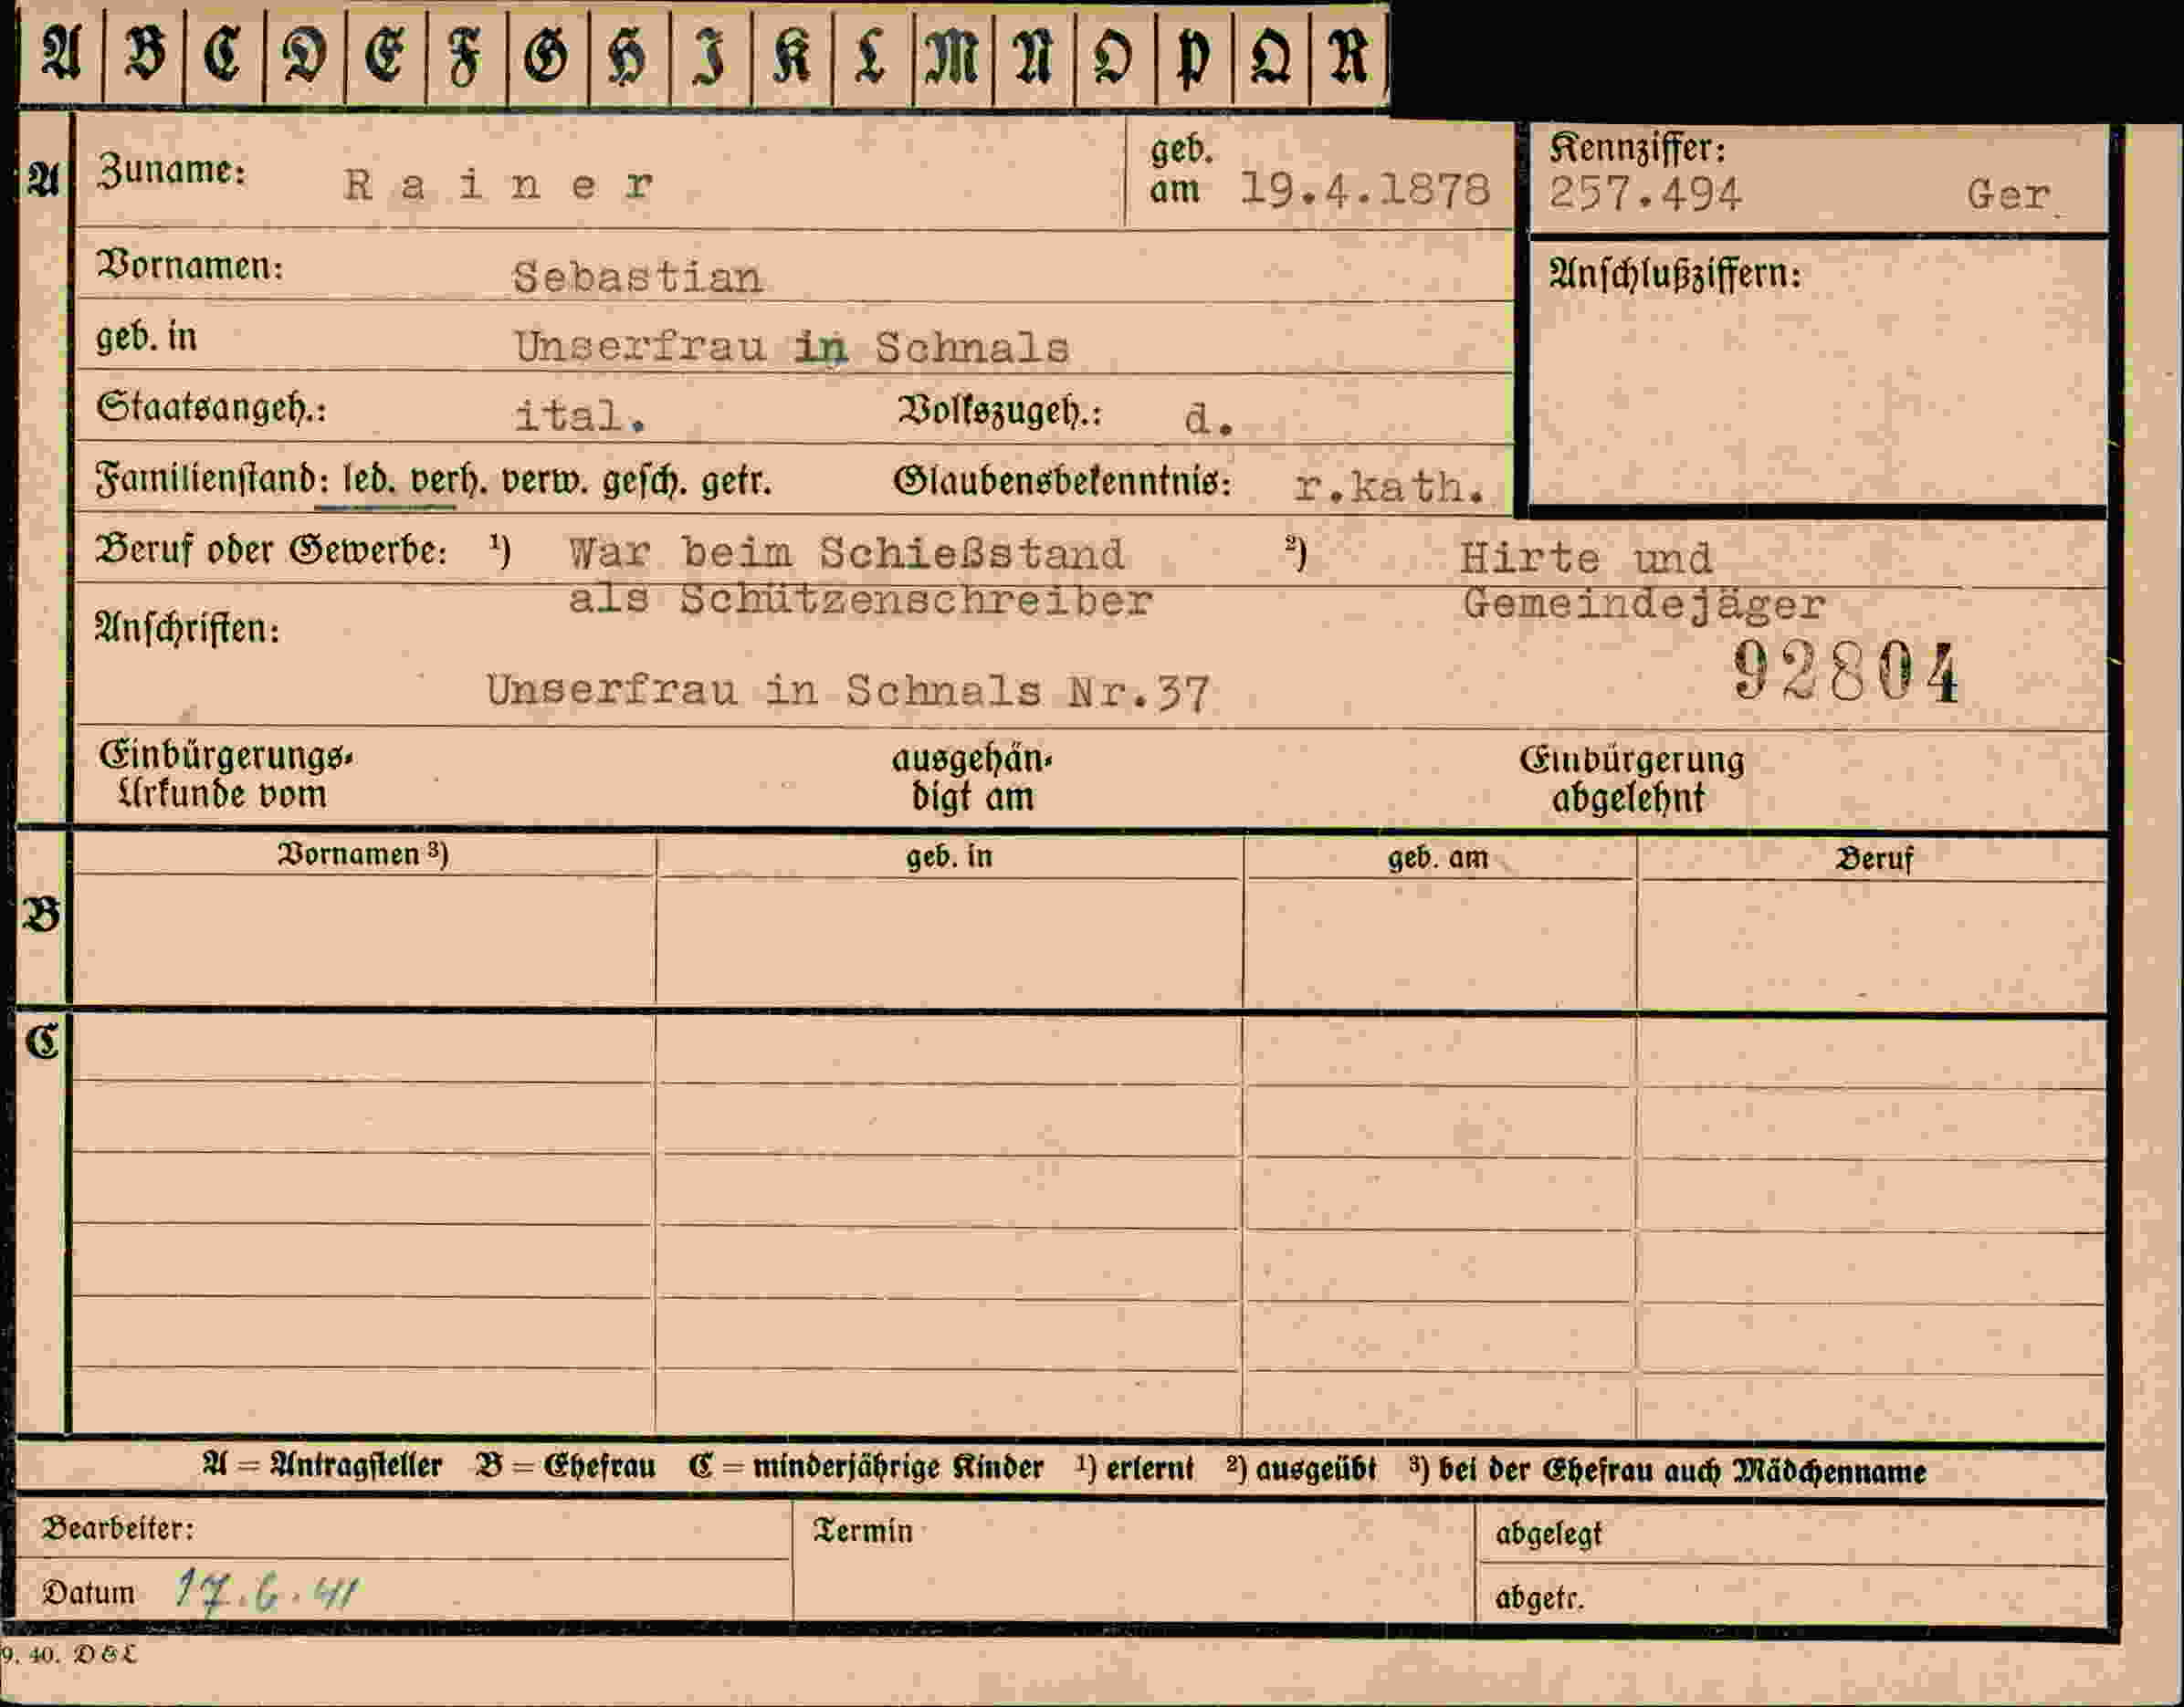 A B C D E F G H I K L M N O P Q R
A Zuname: Rainer geb. am 19.4.1878
Kennziffer: 257.494 Ger.
Vornamen: Sebastian
Anschlußziffern:
geb. in Unserfrau in Schnals
Staatsangeh.: ital. Volkszugeh.: d.
Familienstand: led. verh. verw. gesch. getr. Glaubensbekenntnis: r.kath.
Beruf oder Gewerbe: ¹) War beim Schießstand ²) Hirte und
als Schützenschreiber Gemeindejäger
Anschriften:
92804
Unserfrau in Schnals Nr.37
Einbürgerungs- ausgehän- Einbürgerung
Urkunde vom digt am abgelehnt
Vornamen ³) geb. in geb. am Beruf
B
C
A = Antragsteller B = Ehefrau C = minderjährige Kinder ¹) erlernt ²) ausgeübt ³) bei der Ehefrau auch Mädchenname
Bearbeiter: Termin abgelegt
Datum 17.6.41 abgetr.
9. 40. D & L